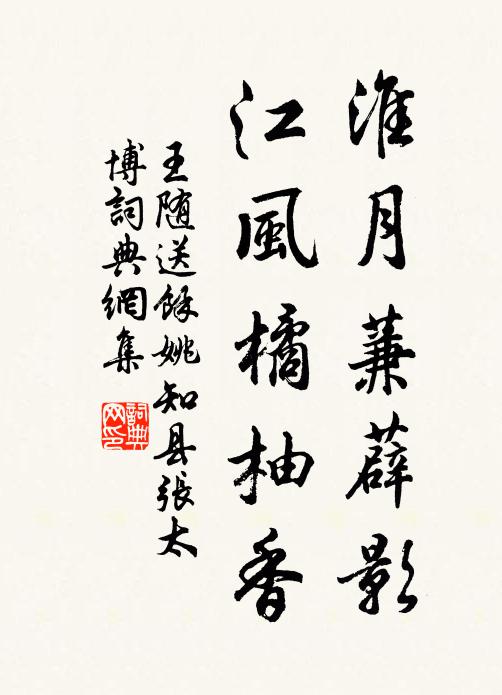 淮月蒹薜影
江風橘柚香
王随送餘姚知县張太
博詞典網集
詞典
网印